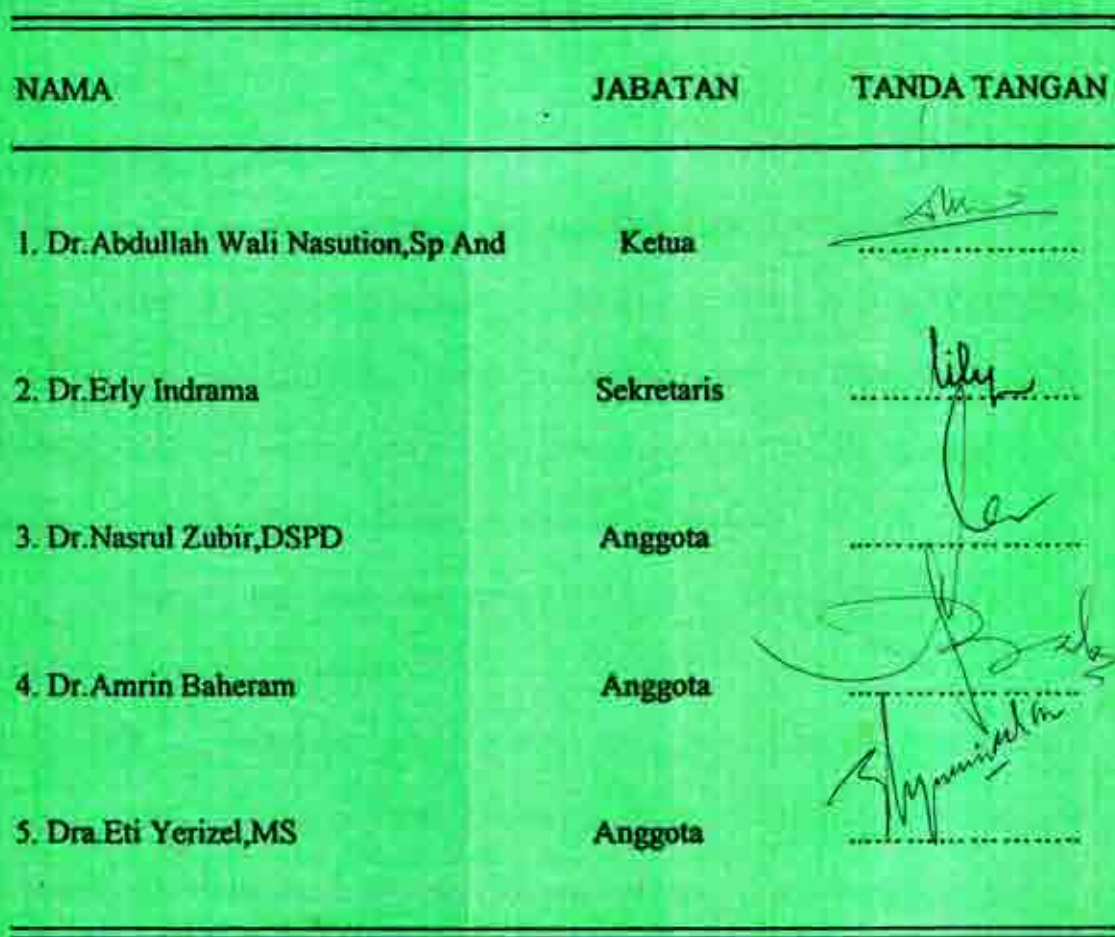 NAMA JABATAN TANDA TANGAN
1. Dr.Abdullah Wali Nasution,Sp And Ketua
2. Dr.Erly Indrama Sekretaris
3. Dr.Nasrul Zubir,DSPD Anggota
4. Dr.Amrin Baheram Anggota
5. Dra.Eti Yerizel,MS Anggota